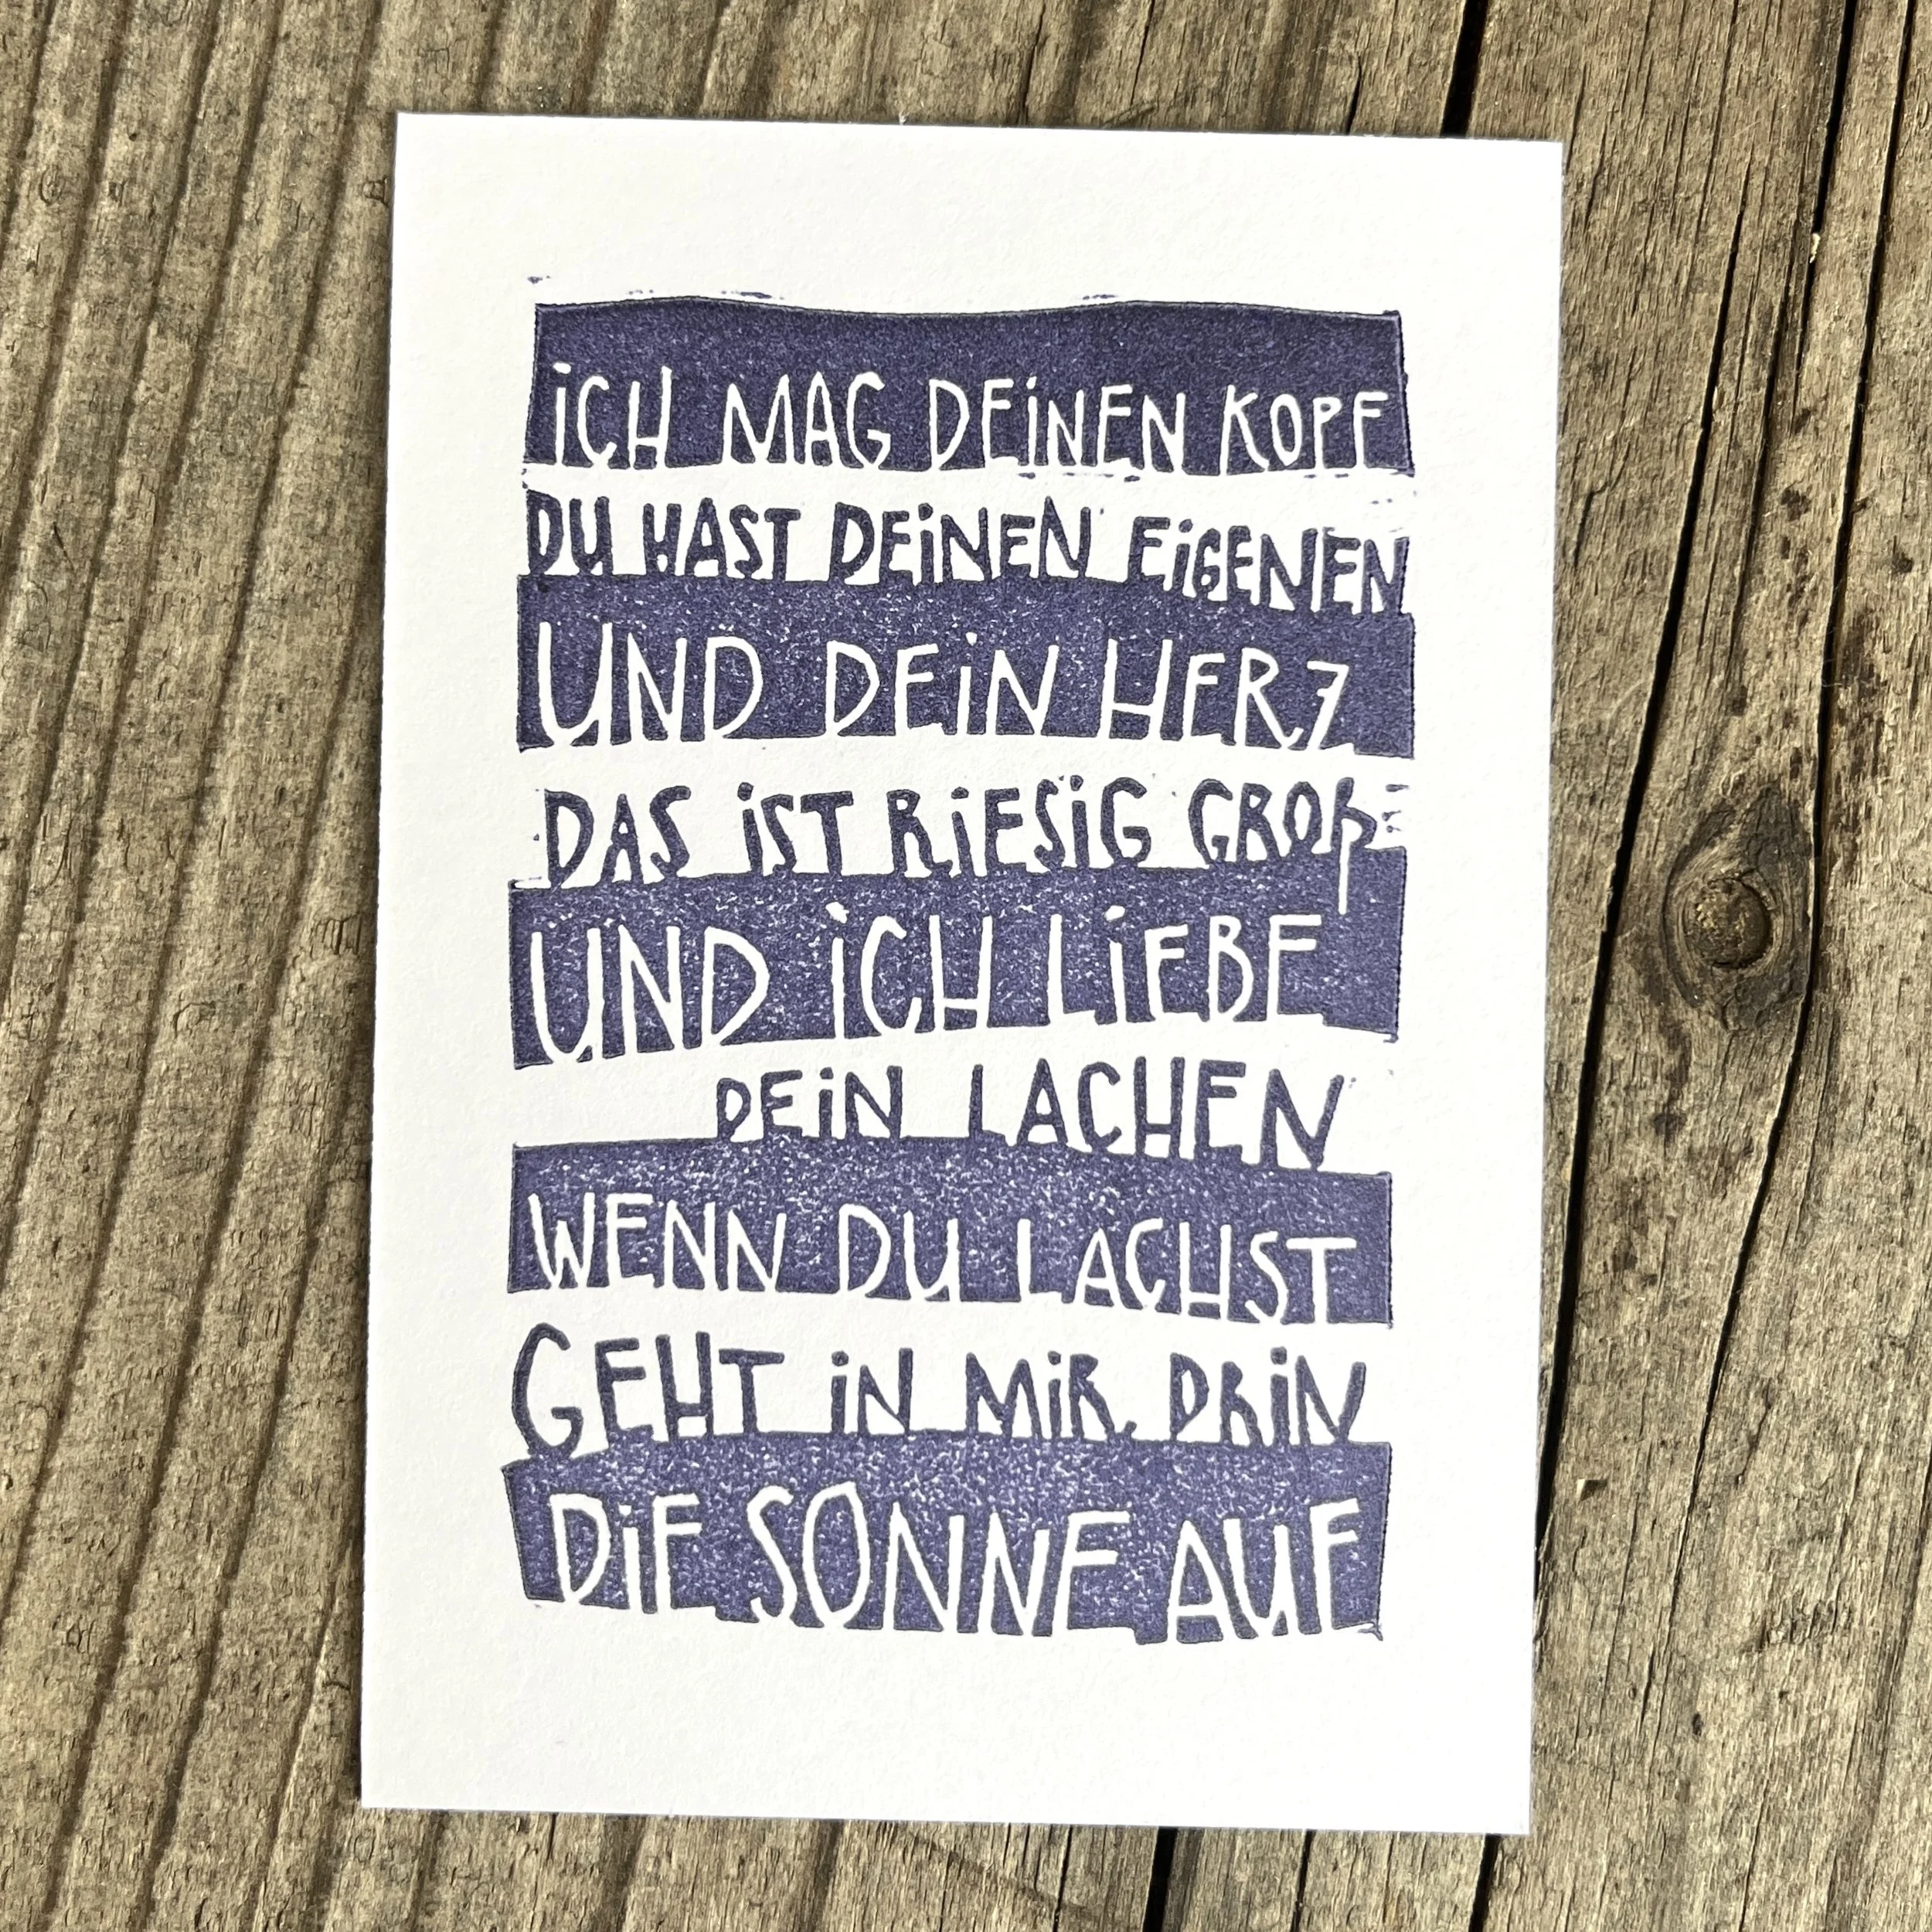 iCH MAG DEiNEN KOPF
DU HAST DEiNEN EiGENEN
UND DEiN HERZ
DAS iST RiESiG GROß
UND iCH LiEBE
DEiN LACHEN
WENN DU LACHST
GEHT iN MiR DRiN
DiE SONNE AUF